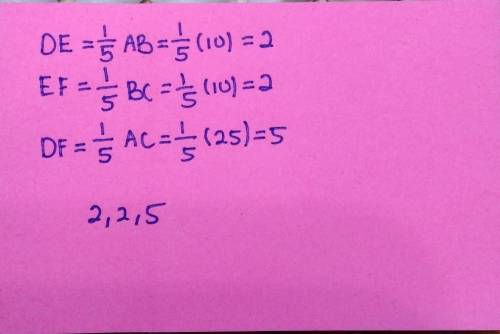 DE = 1/5 AB = 1/5 (10) = 2
EF = 1/5 BC = 1/5 (10) = 2
DF = 1/5 AC = 1/5 (25) = 5
2, 2, 5